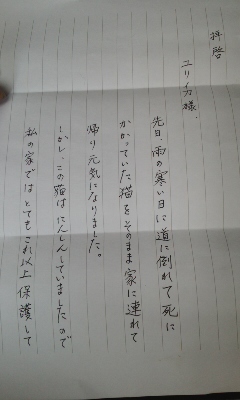 拝啓
ユリイカ様、
先日、雨の寒い日に道に倒れて死に
かかっていた猫をそのまま家に連れて
帰り元気になりました。
しかし、この猫はにんしんしていましたので
私の家ではとてもこれ以上保護して